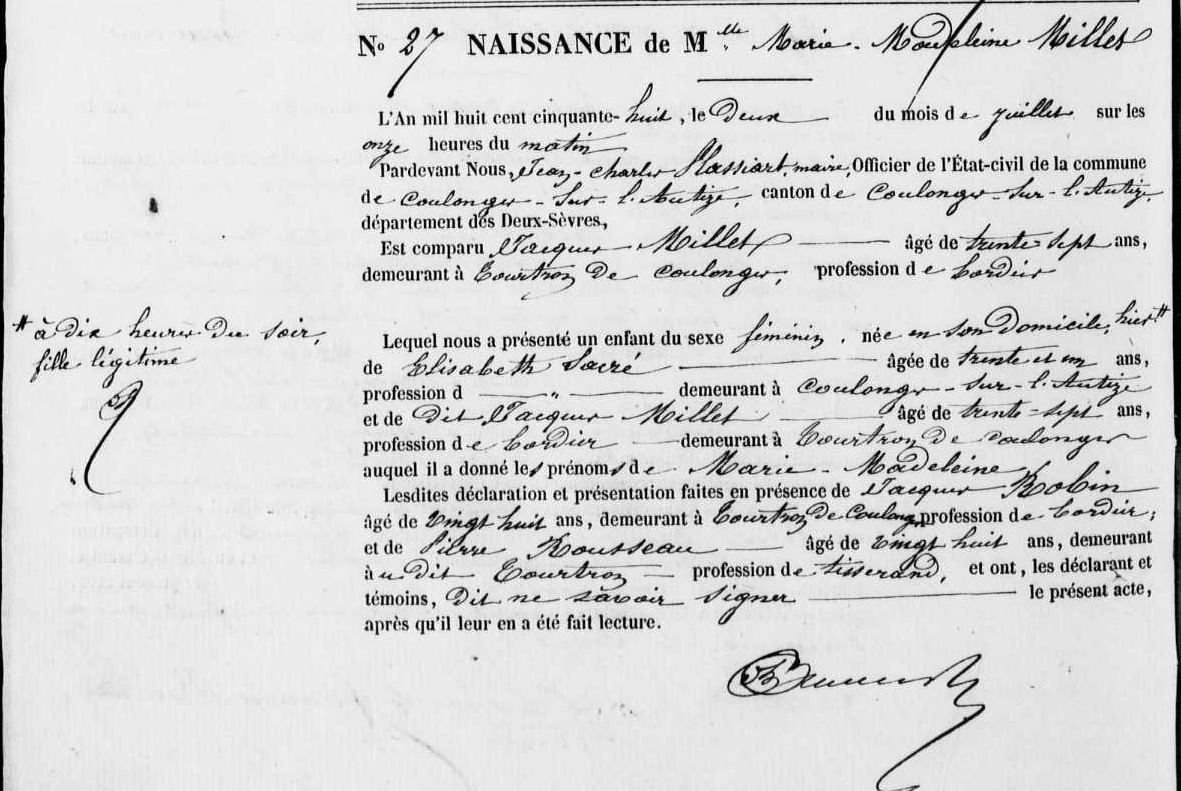 No 27 NAISSANCE de Mlle Marie-Madeleine Millet
L'An mil huit cent cinquante-huit, le Deux du mois de juillet sur les
onze heures du matin
Pardevant Nous, Jean-Charles maire, Officier de l'État-civil de la commune
de Coulonges-sur-l'Autize, canton de Coulonges-sur-l'Autize,
département des Deux-Sèvres,
Est comparu Jacques Millet âgé de trente-sept ans,
demeurant à Tourtron de Coulonges, profession de Cordier
# à dix heures du soir,
fille légitime
Lequel nous a présenté un enfant du sexe féminin, née en son Domicile, hier #
de Elisabeth Sacré âgée de trente et un ans,
profession d " demeurant à Coulonges-sur-l'Autize
et de Dit Jacques Millet âgé de trente-sept ans,
profession de Cordier demeurant à Tourtron de Coulonges
auquel il a donné les prénoms de Marie-Madeleine
Lesdites déclaration et présentation faites en présence de Jacques Robin
âgé de vingt huit ans, demeurant à Tourtron de Coulong profession de Cordier;
et de Pierre Rousseau âgé de vingt huit ans, demeurant
à u dit Tourtron profession de tisserand, et ont, les déclarant et
témoins, Dit ne savoir signer le présent acte,
après qu'il leur en a été fait lecture.